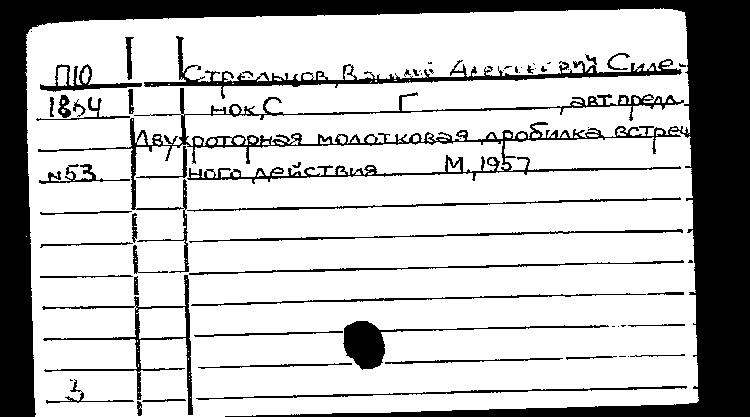 П10 Стрельцов, Василий Алексеевич Силе-
1864 нок, С Г , авт. предл.
Двухроторная молотковая дробилка встреч
№53. ного действия М., 1957
3